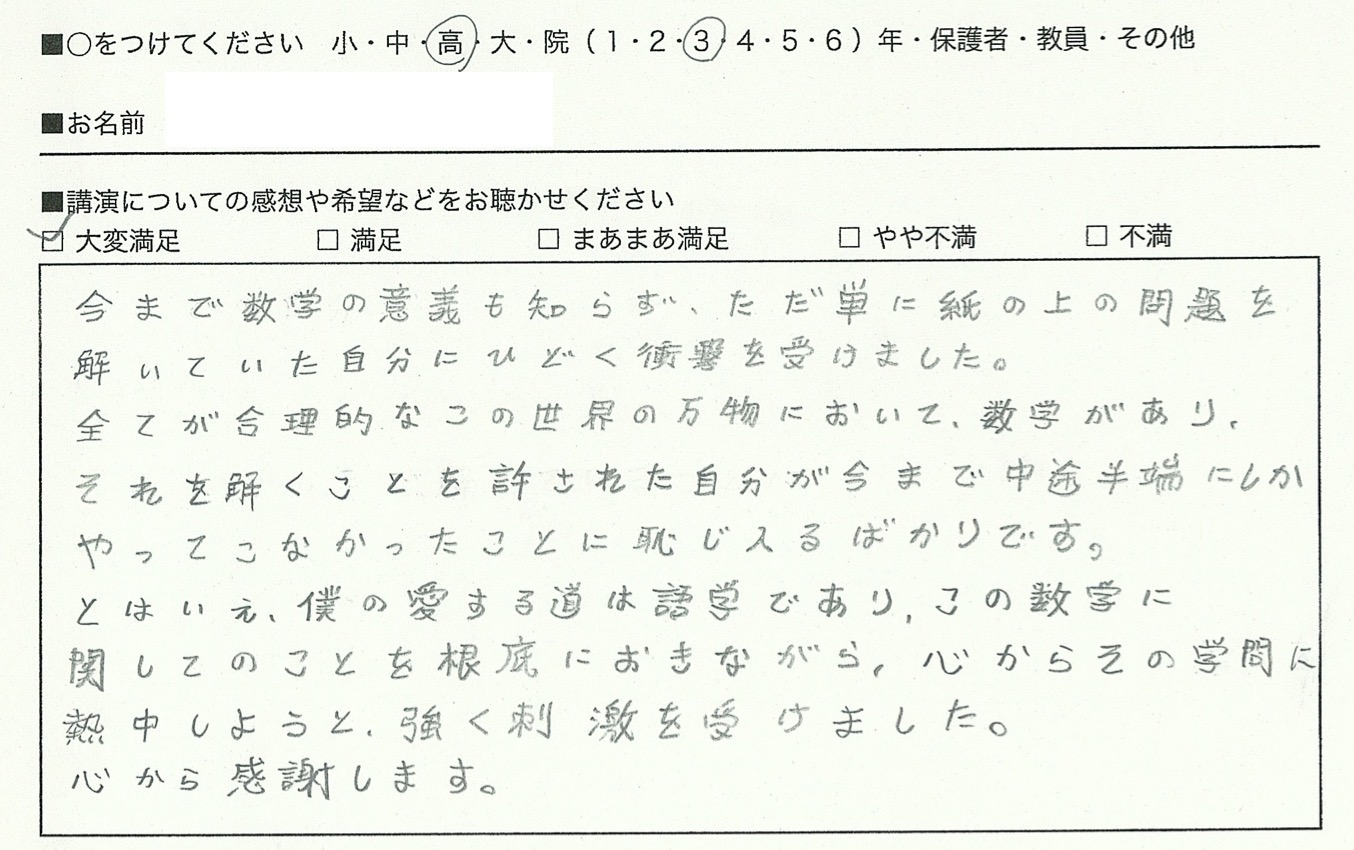 ■○をつけてください 小・中・高・大・院（1・2・3・4・5・6）年・保護者・教員・その他
■お名前
■講演についての感想や希望などをお聴かせください
☑ 大変満足 □ 満足 □ まあまあ満足 □ やや不満 □ 不満
今まで数学の意義も知らず、ただ単に紙の上の問題を
解いていた自分にひどく衝撃を受けました。
全てが合理的なこの世界の万物において、数学があり、
それを解くことを許された自分が今まで中途半端にしか
やってこなかったことに恥じ入るばかりです。
とはいえ、僕の愛する道は語学であり、この数学に
関してのことを根底におきながら、心からその学問に
熱中しようと、強く刺激を受けました。
心から感謝します。